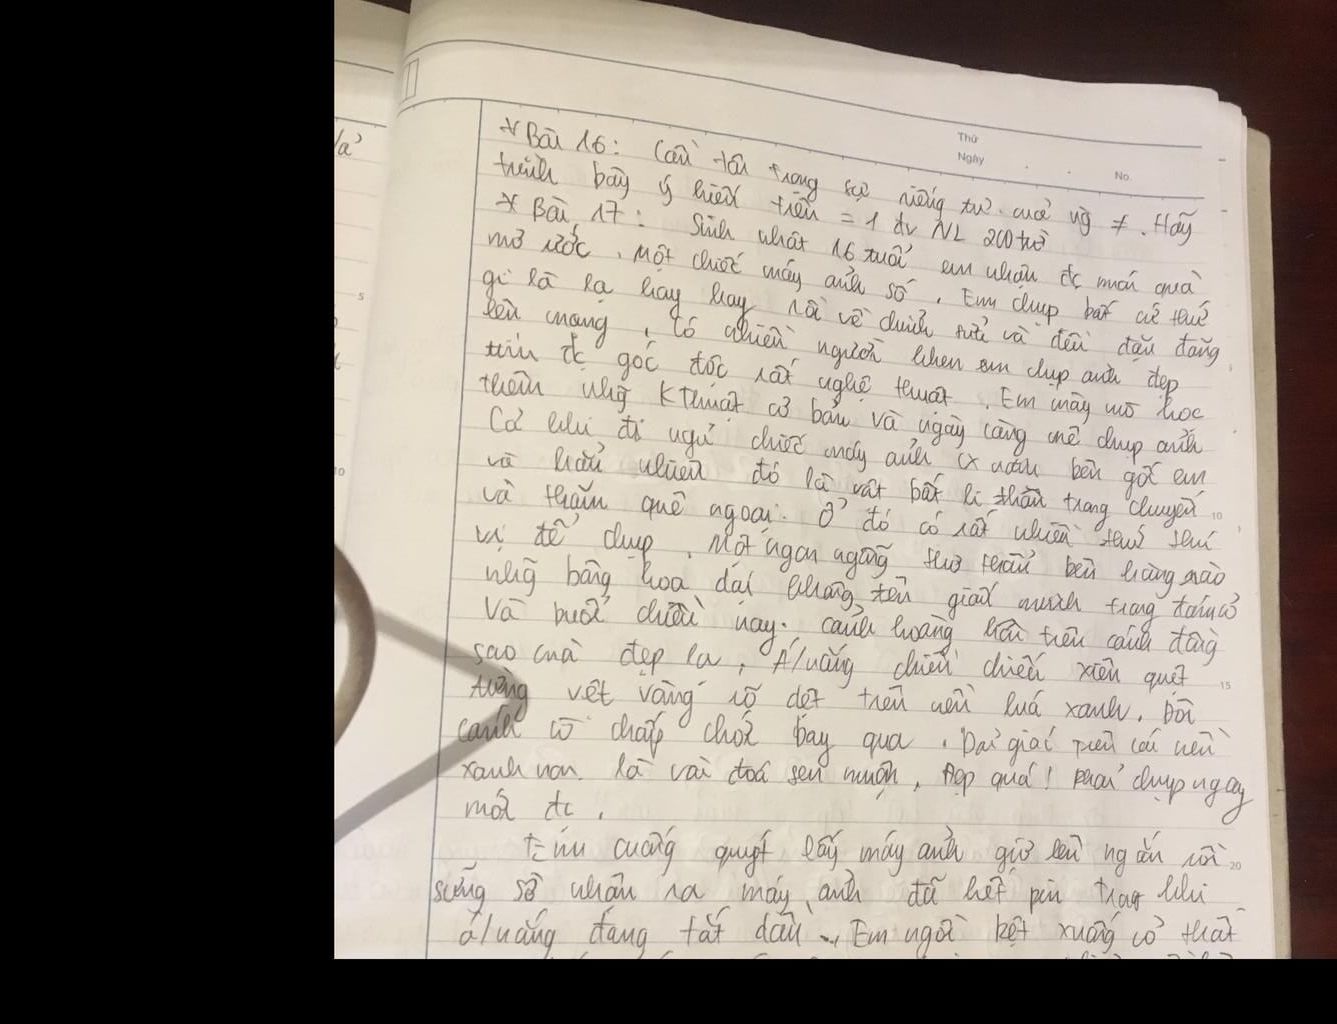 * Bài 16: Cần tôn trọng sự riêng tư của ng ≠. Hãy
trình bày ý kiến trên = 1 đv NL 200 từ
* Bài 17: Sinh nhật 16 tuổi em nhận đc món quà
mơ ước. Một chiếc máy ảnh số. Em chụp bất cứ thứ
gì là lạ hay hay rồi về chỉnh sửa và đều đặn đăng
lên mạng. Có nhiều người khen em chụp ảnh đẹp
tìm đc góc độc rất nghệ thuật. Em mày mò học
thêm nhg KThuật cơ bản và ngày càng mê chụp ảnh
Cả khi đi ngủ chiếc máy ảnh cx nằm bên gối em
và hiển nhiên đó là vật bất li thân trong chuyến
về thăm quê ngoại. Ở đó có rất nhiều thứ thú
vị để chụp. Một ngọn ngỗng thơ thẩn bên hàng rào
nhg bông hoa dại không tên giấu mình trong đám cỏ
Và buổi chiều nay. cảnh hoàng hôn trên cánh đồng
sao mà đẹp lạ, Á/nắng chiều chiếu xiên quét
từng vệt vàng rõ dệt trên nền lúa xanh. Đôi
cánh cò chấp chới bay qua. Dải giác trên cái nền
xanh non là vài đoá sen muộn. Đẹp quá! Phải chụp ngay
mới đc.
Em cuống quýt lấy máy ảnh giơ lên ngắn rồi
sững sờ nhận ra máy ảnh đã hết pin trog khi
á/nắng đang tắt dần. Em ngồi bệt xuống cỏ thất